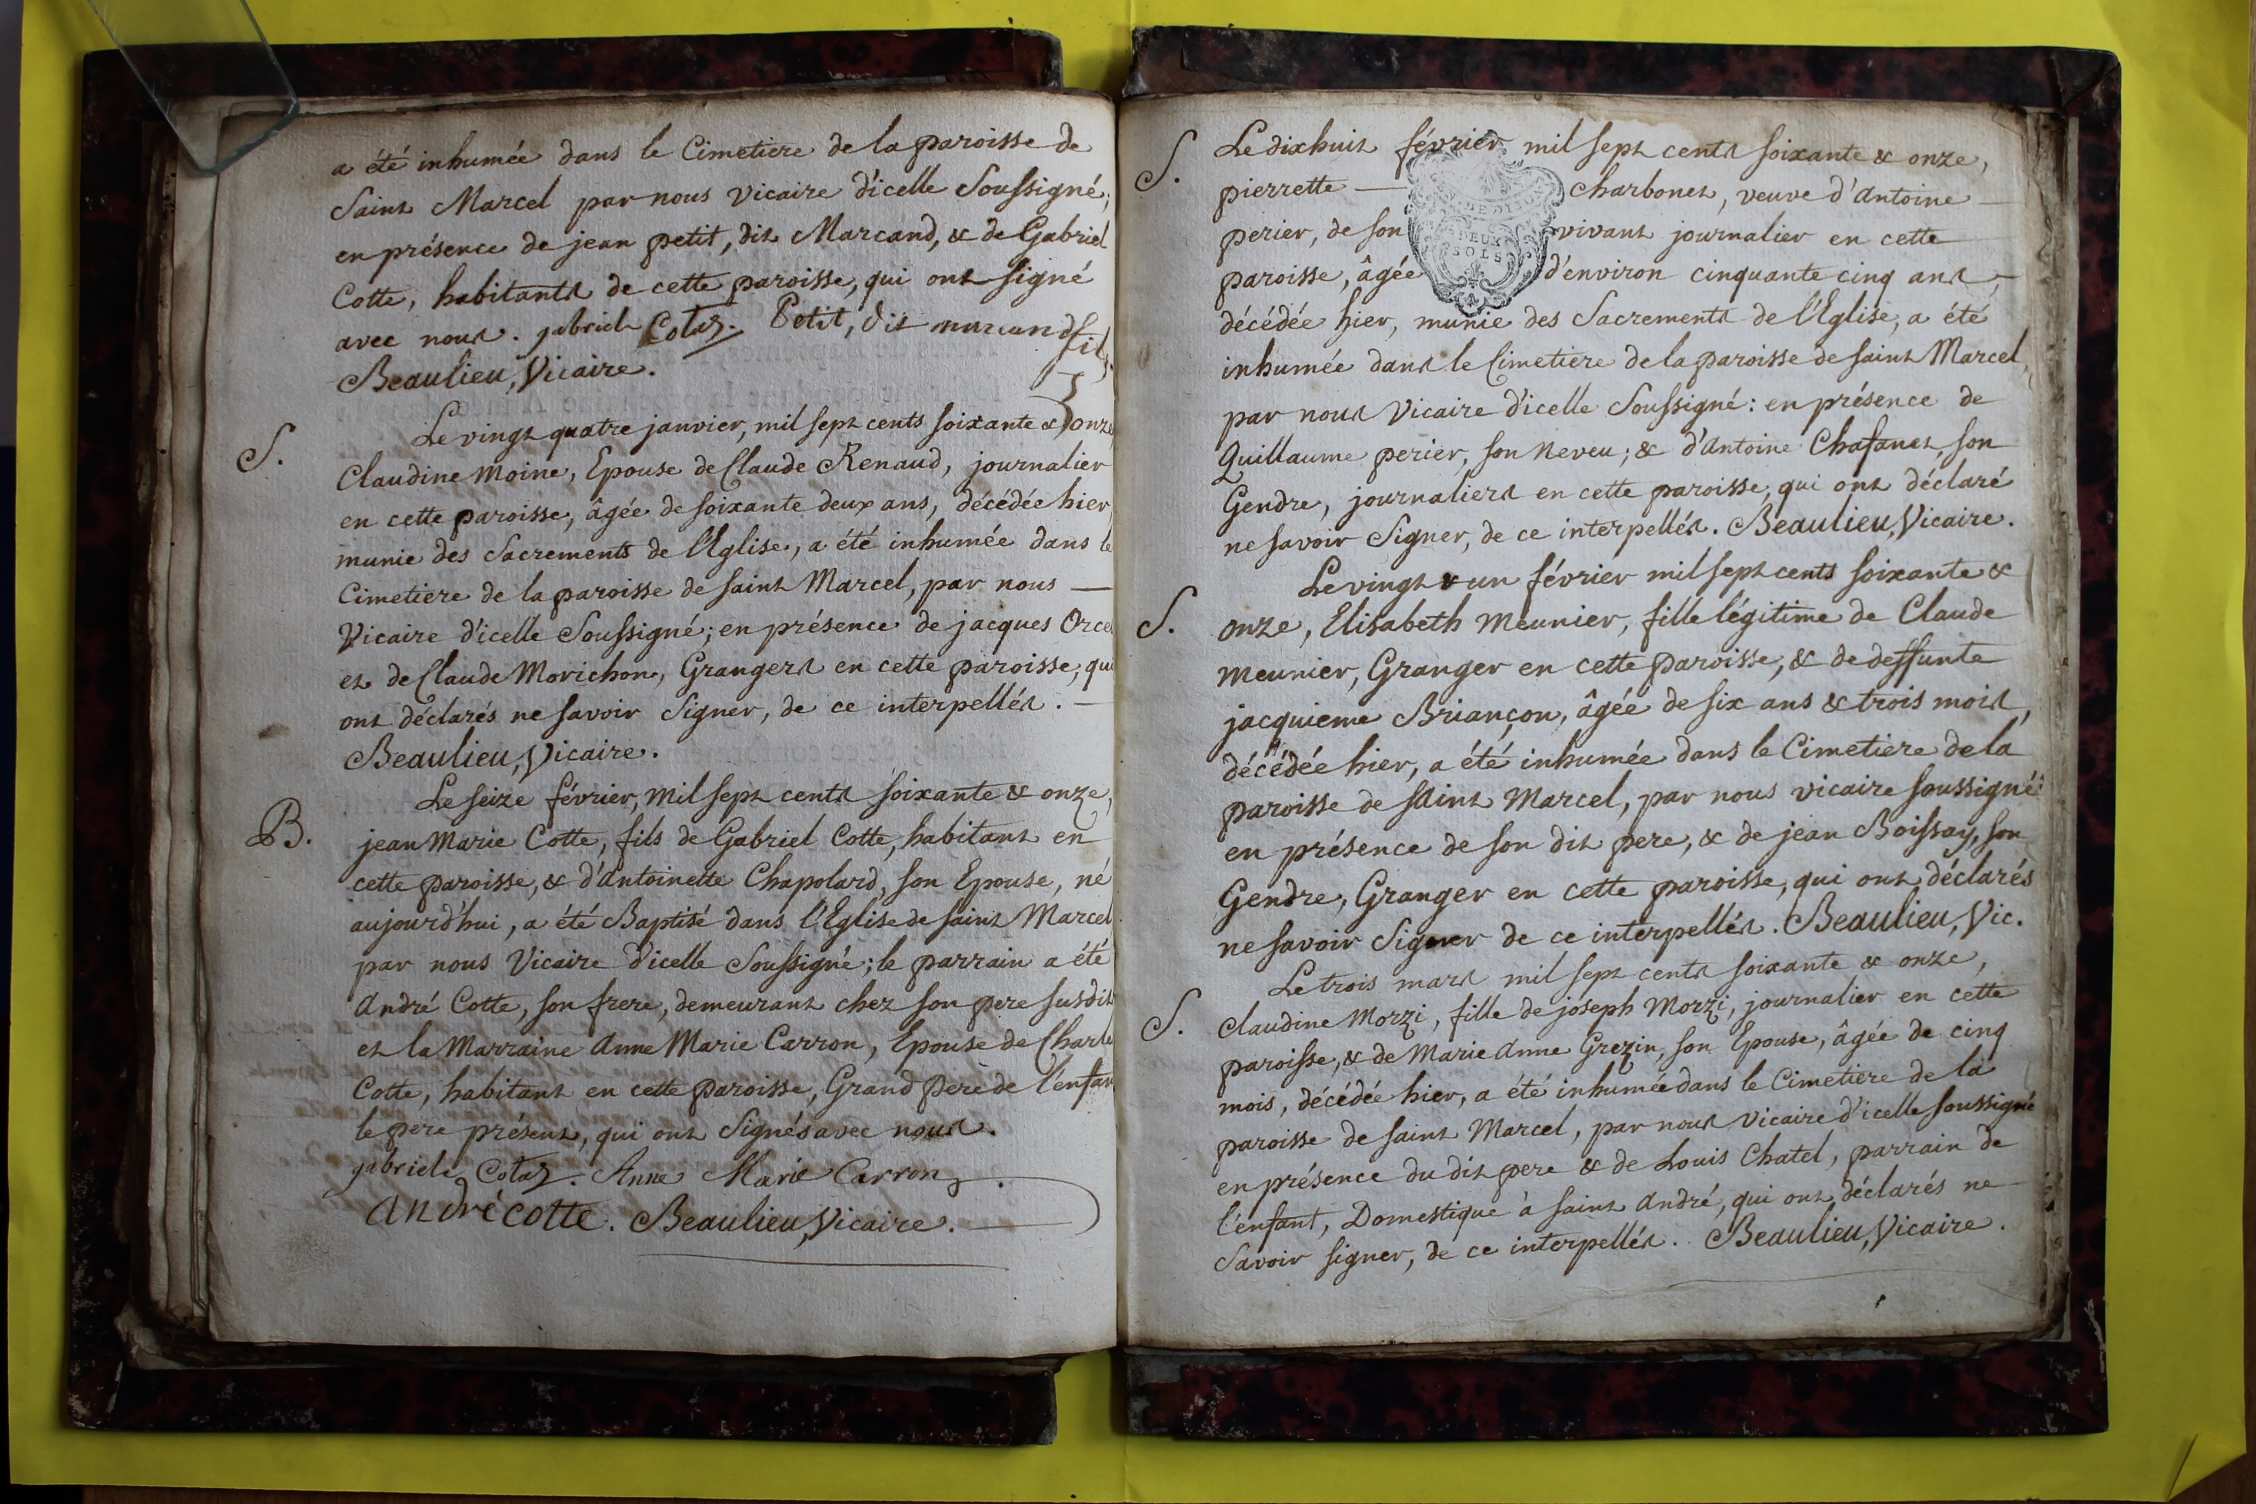 a été inhumée dans le Cimetiere de la paroisse de
Saint Marcel par nous Vicaire d'icelle Soussigné;
en présence de jean petit, dit Marcand, & de Gabriel
Cotte, habitants de cette paroisse, qui ont signé
avec nous. gabriel Cotaz. Petit, dit marcand fils.
Beaulieu, Vicaire.
Le vingt quatre janvier, mil sept cents soixante & onze,
S.
Claudine Moine, Epouse de Claude Renaud, journalier
en cette paroisse, âgée de soixante deux ans, décédée hier
munie des Sacrements de l'Eglise, a été inhumée dans le
Cimetiere de la paroisse de saint Marcel, par nous
Vicaire d'icelle Soussigné; en présence de jacques Orcel
et de Claude Morichon, Grangers en cette paroisse, qui
ont déclarés ne savoir Signer, de ce interpellés.
Beaulieu, Vicaire.
Le seize février, mil sept cents soixante & onze,
B.
jean Marie Cotte, fils de Gabriel Cotte, habitant en
cette paroisse, & d'antoinette Chapolard, son Epouse, né
aujourd'hui, a été Baptisé dans l'Eglise de saint Marcel
par nous Vicaire d'icelle Soussigné; le parrain a été
André Cotte, son frere, demeurant chez son pere susdit
et la Marraine Anne Marie Carron, Epouse de Charle
Cotte, habitant en cette paroisse, Grand Pere de l'enfan
le pere présent, qui ont Signés avec nous.
gabriel Cotaz. Anne Marie Carron.
André cotte. Beaulieu, Vicaire.
S.
Le dixhuit février mil sept cents soixante & onze,
pierrette charbonet, veuve d'antoine
perier, de son vivant journalier en cette
DEUX
SOLS
paroisse, âgée d'environ cinquante cinq ans,
décédée hier, munie des Sacrements de l'Eglise, a été
inhumée dans le Cimetiere de la paroisse de saint Marcel,
par nous Vicaire d'icelle Soussigné: en présence de
Guillaume perier, son neveu; & d'antoine Chafanet, son
Gendre, journaliers en cette paroisse, qui ont déclaré
ne savoir Signer, de ce interpellés. Beaulieu, Vicaire.
Le vingt & un février mil sept cents soixante &
S.
onze, Elisabeth Meunier, fille légitime de Claude
Meunier, Granger en cette paroisse, & de deffunte
jacquieme Briançon, âgée de six ans & trois mois,
décédée hier, a été inhumée dans le Cimetiere de la
paroisse de saint Marcel, par nous vicaire soussigné:
en présence de son dit pere, & de jean Boissay, son
Gendre, Granger en cette paroisse, qui ont déclarés
ne savoir Signer de ce interpellés. Beaulieu, Vic.
Le trois mars mil sept cents soixante & onze,
S.
Claudine Morzi, fille de joseph Morzi, journalier en cette
paroisse, & de Marie Anne Grezin, son Epouse, âgée de cinq
mois, décédée hier, a été inhumée dans le Cimetiere de la
paroisse de saint Marcel, par nous vicaire d'icelle soussigné
en présence du dit pere & de Louis Chatel, parrain de
l'enfant, Domestique à saint André, qui ont déclarés ne
Savoir signer, de ce interpellés. Beaulieu, Vicaire.